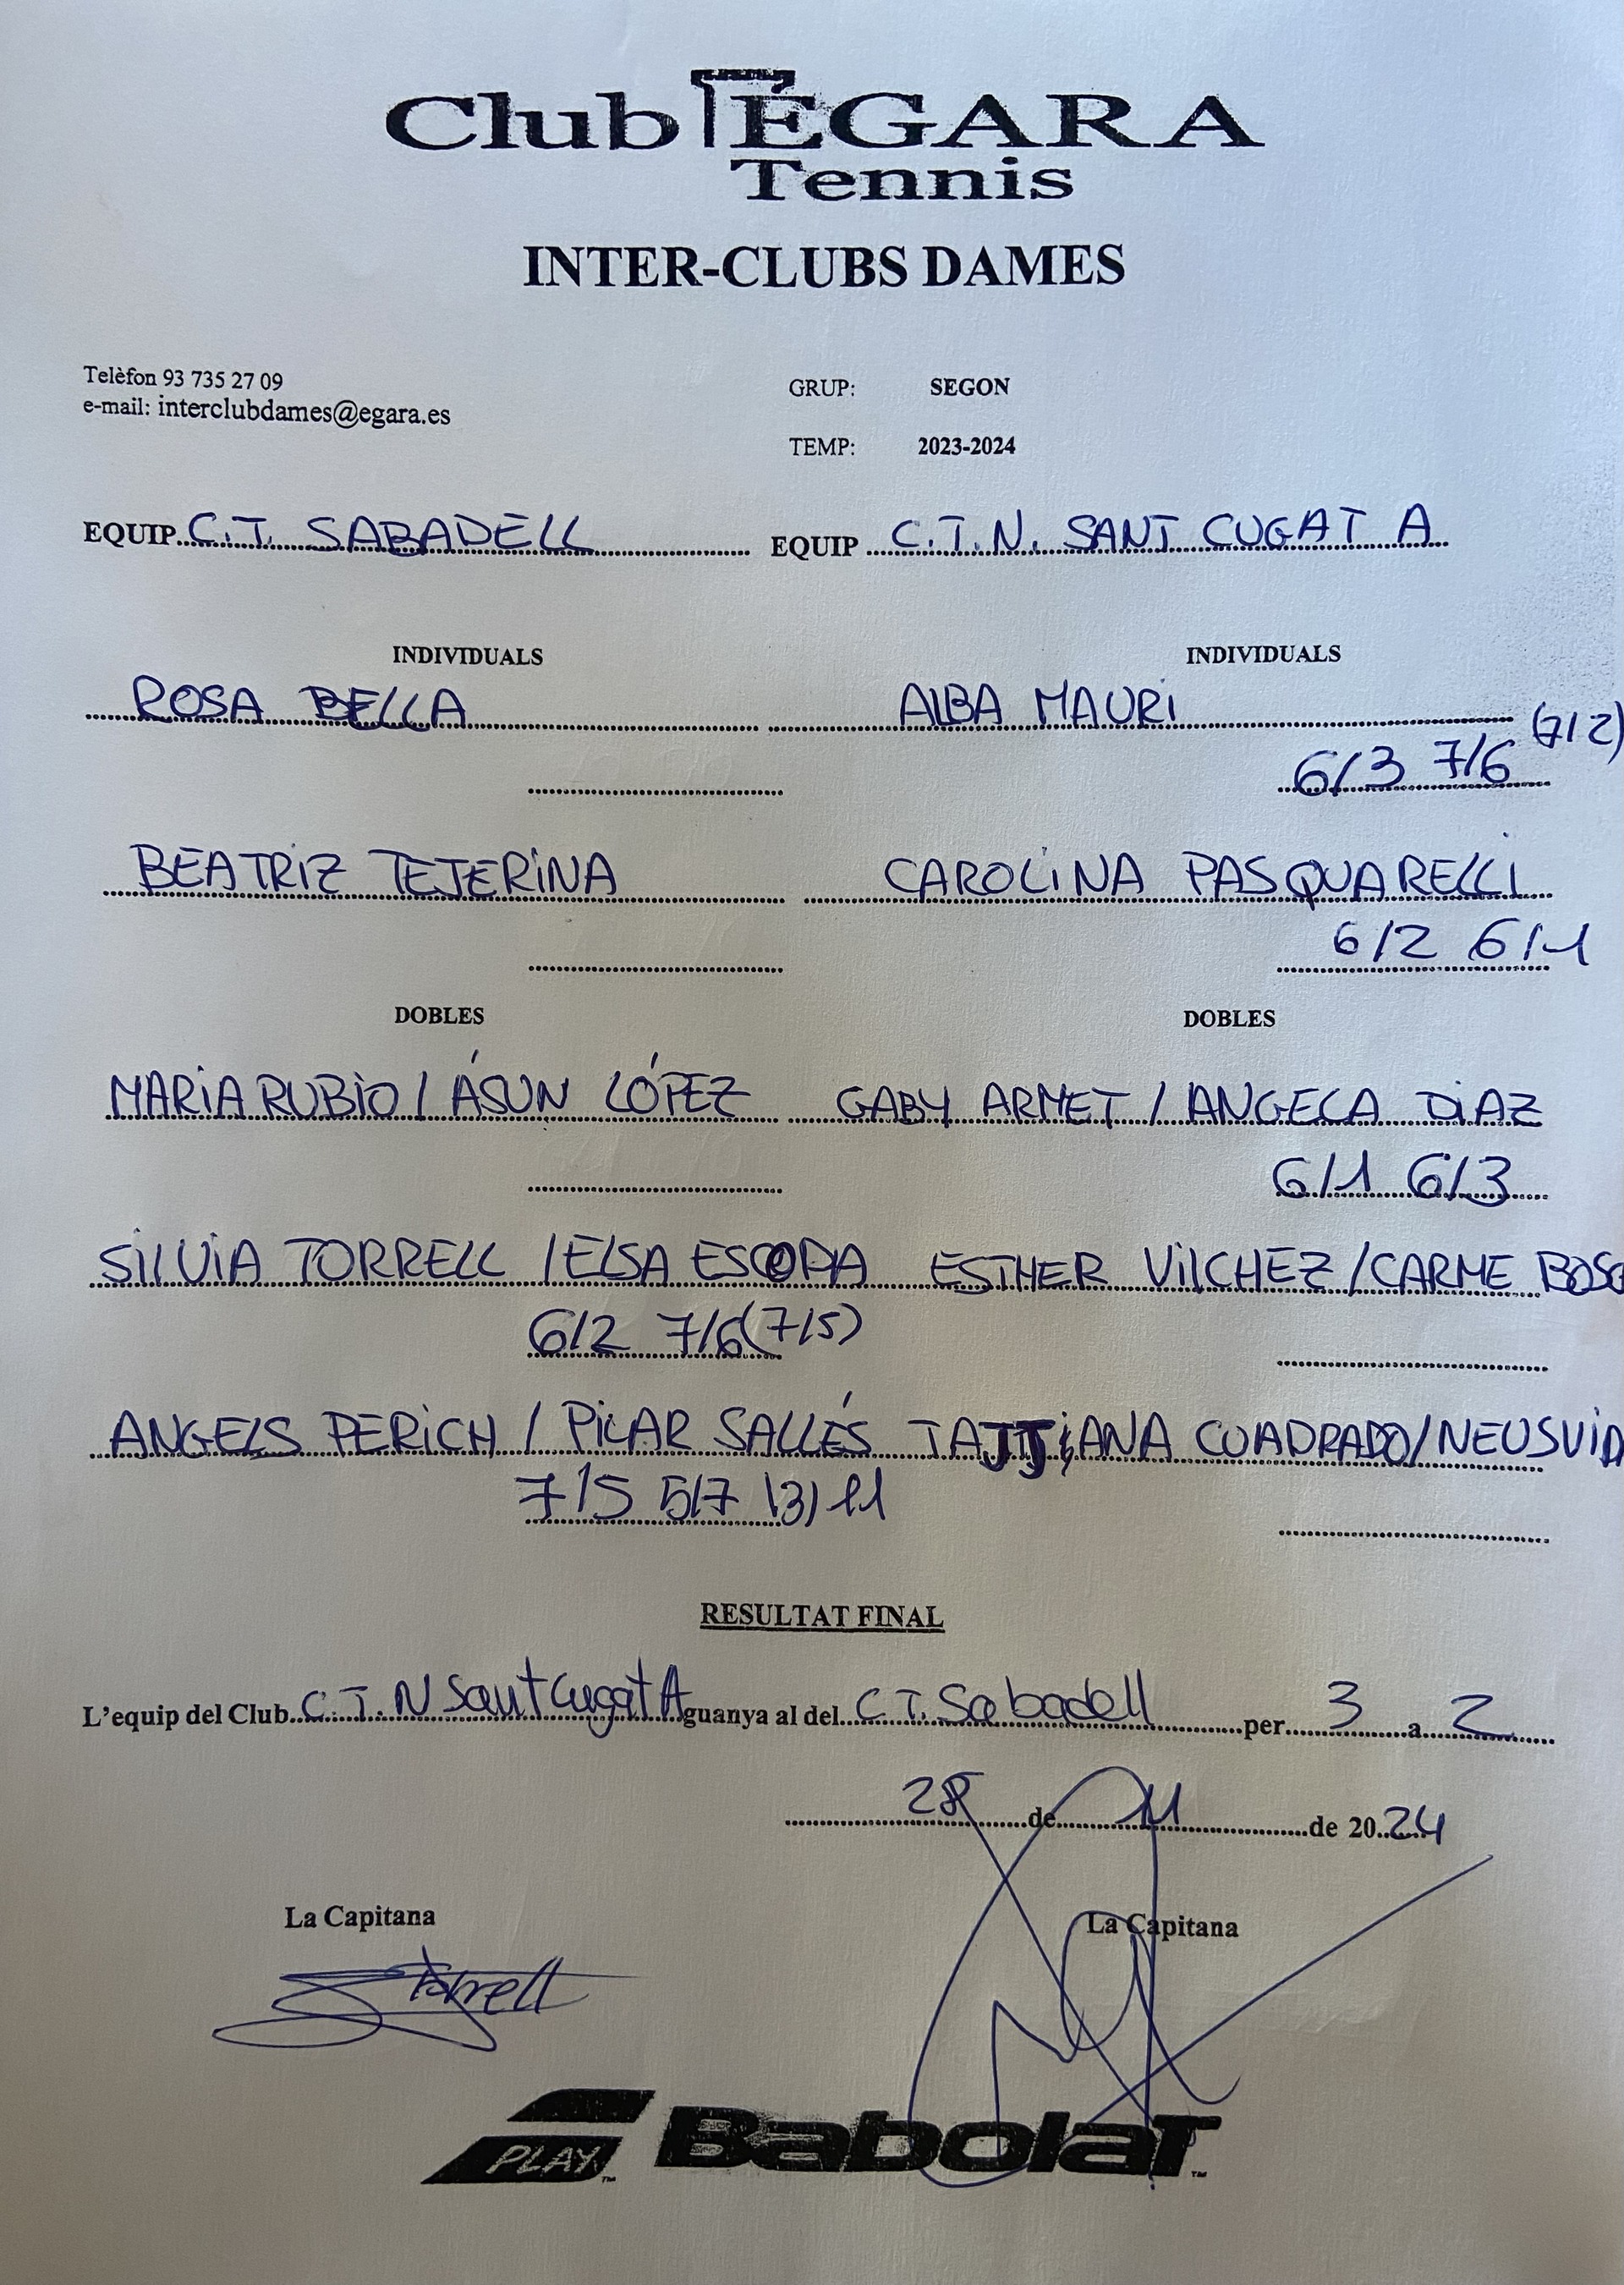 Club ÈGARA
Tennis
INTER-CLUBS DAMES
Telèfon 93 735 27 09
e-mail: interclubdames@egara.es
GRUP: SEGON
TEMP: 2023-2024
EQUIP C.T. SABADELL EQUIP C.T.N. SANT CUGAT A
INDIVIDUALS INDIVIDUALS
ROSA BELLA ALBA MAURI
6/3 7/6 (7/2)
BEATRIZ TEJERINA CAROLINA PASQUARELLI
6/2 6/1
DOBLES DOBLES
MARIA RUBIO / ÁSUN LÓPEZ GABY ARMET / ANGELA DIAZ
6/1 6/3
SILVIA TORRELL / ELSA ESCODA ESTHER VILCHEZ / CARME BOSC
6/2 7/6 (7/5)
ANGELS PERICH / PILAR SALLÉS CUADRADO / NEUS
7/5 5/7
RESULTAT FINAL
L'equip del Club C.T.N Sant Cugat A guanya al del C.T. Sabadell per 3 a 2
28 de 11 de 2024
La Capitana La Capitana
Torrell
PLAY Babolat